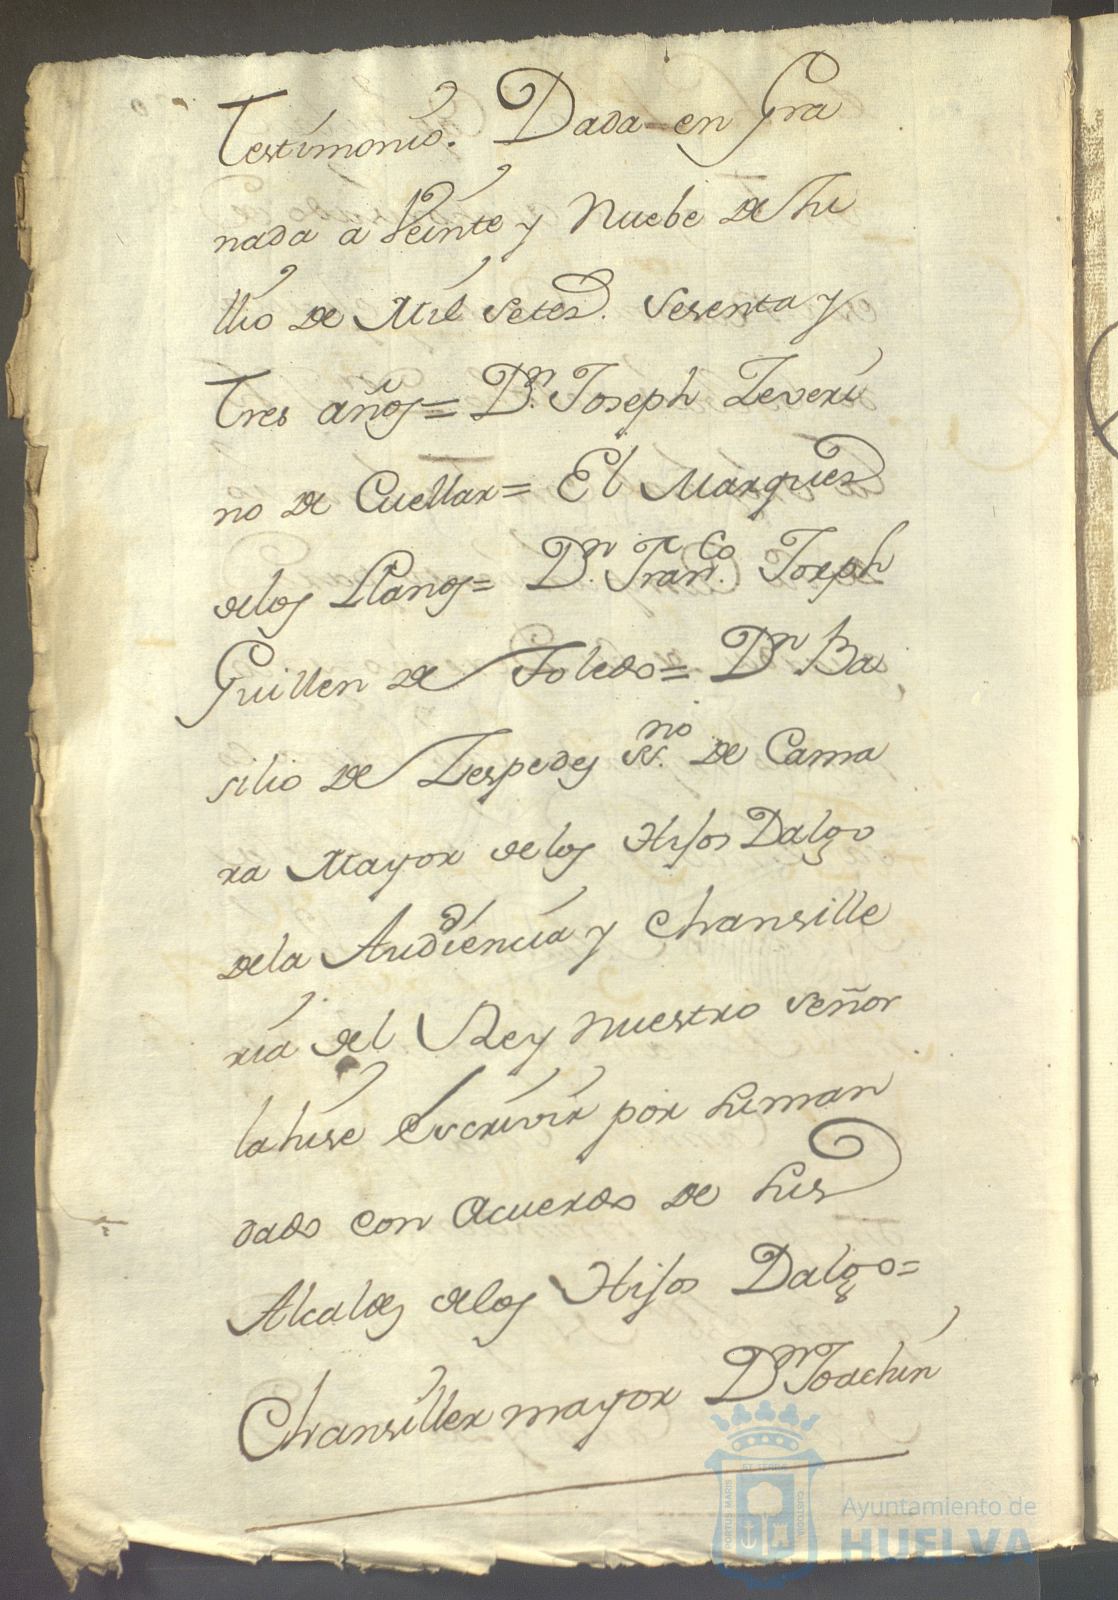 Testimonio. Dada en Gra
nada a Veinte y Nuebe de Ju
llio de Mil Setes. Sesenta y
Tres años= Dn. Joseph Zeveri
no de Cuellar= El Marques
delos Llanos= Dn. Franco. Joseph
Guillen de Toledo= Dn Ba
silio de Zespedes ssno. de Cama
ra Mayor delos Hijos Dalgo
dela Audiencia y Chansille
ria del Rey nuestro Señor
la hise Escrivir por su man
dado con acuerdo de sus
Alcaldes delos Hijos Dalgo=
Chansiller mayor Dn Joachin
PORTUS MARIS ET TERRAE CUSTODIA
Ayuntamiento de
HUELVA